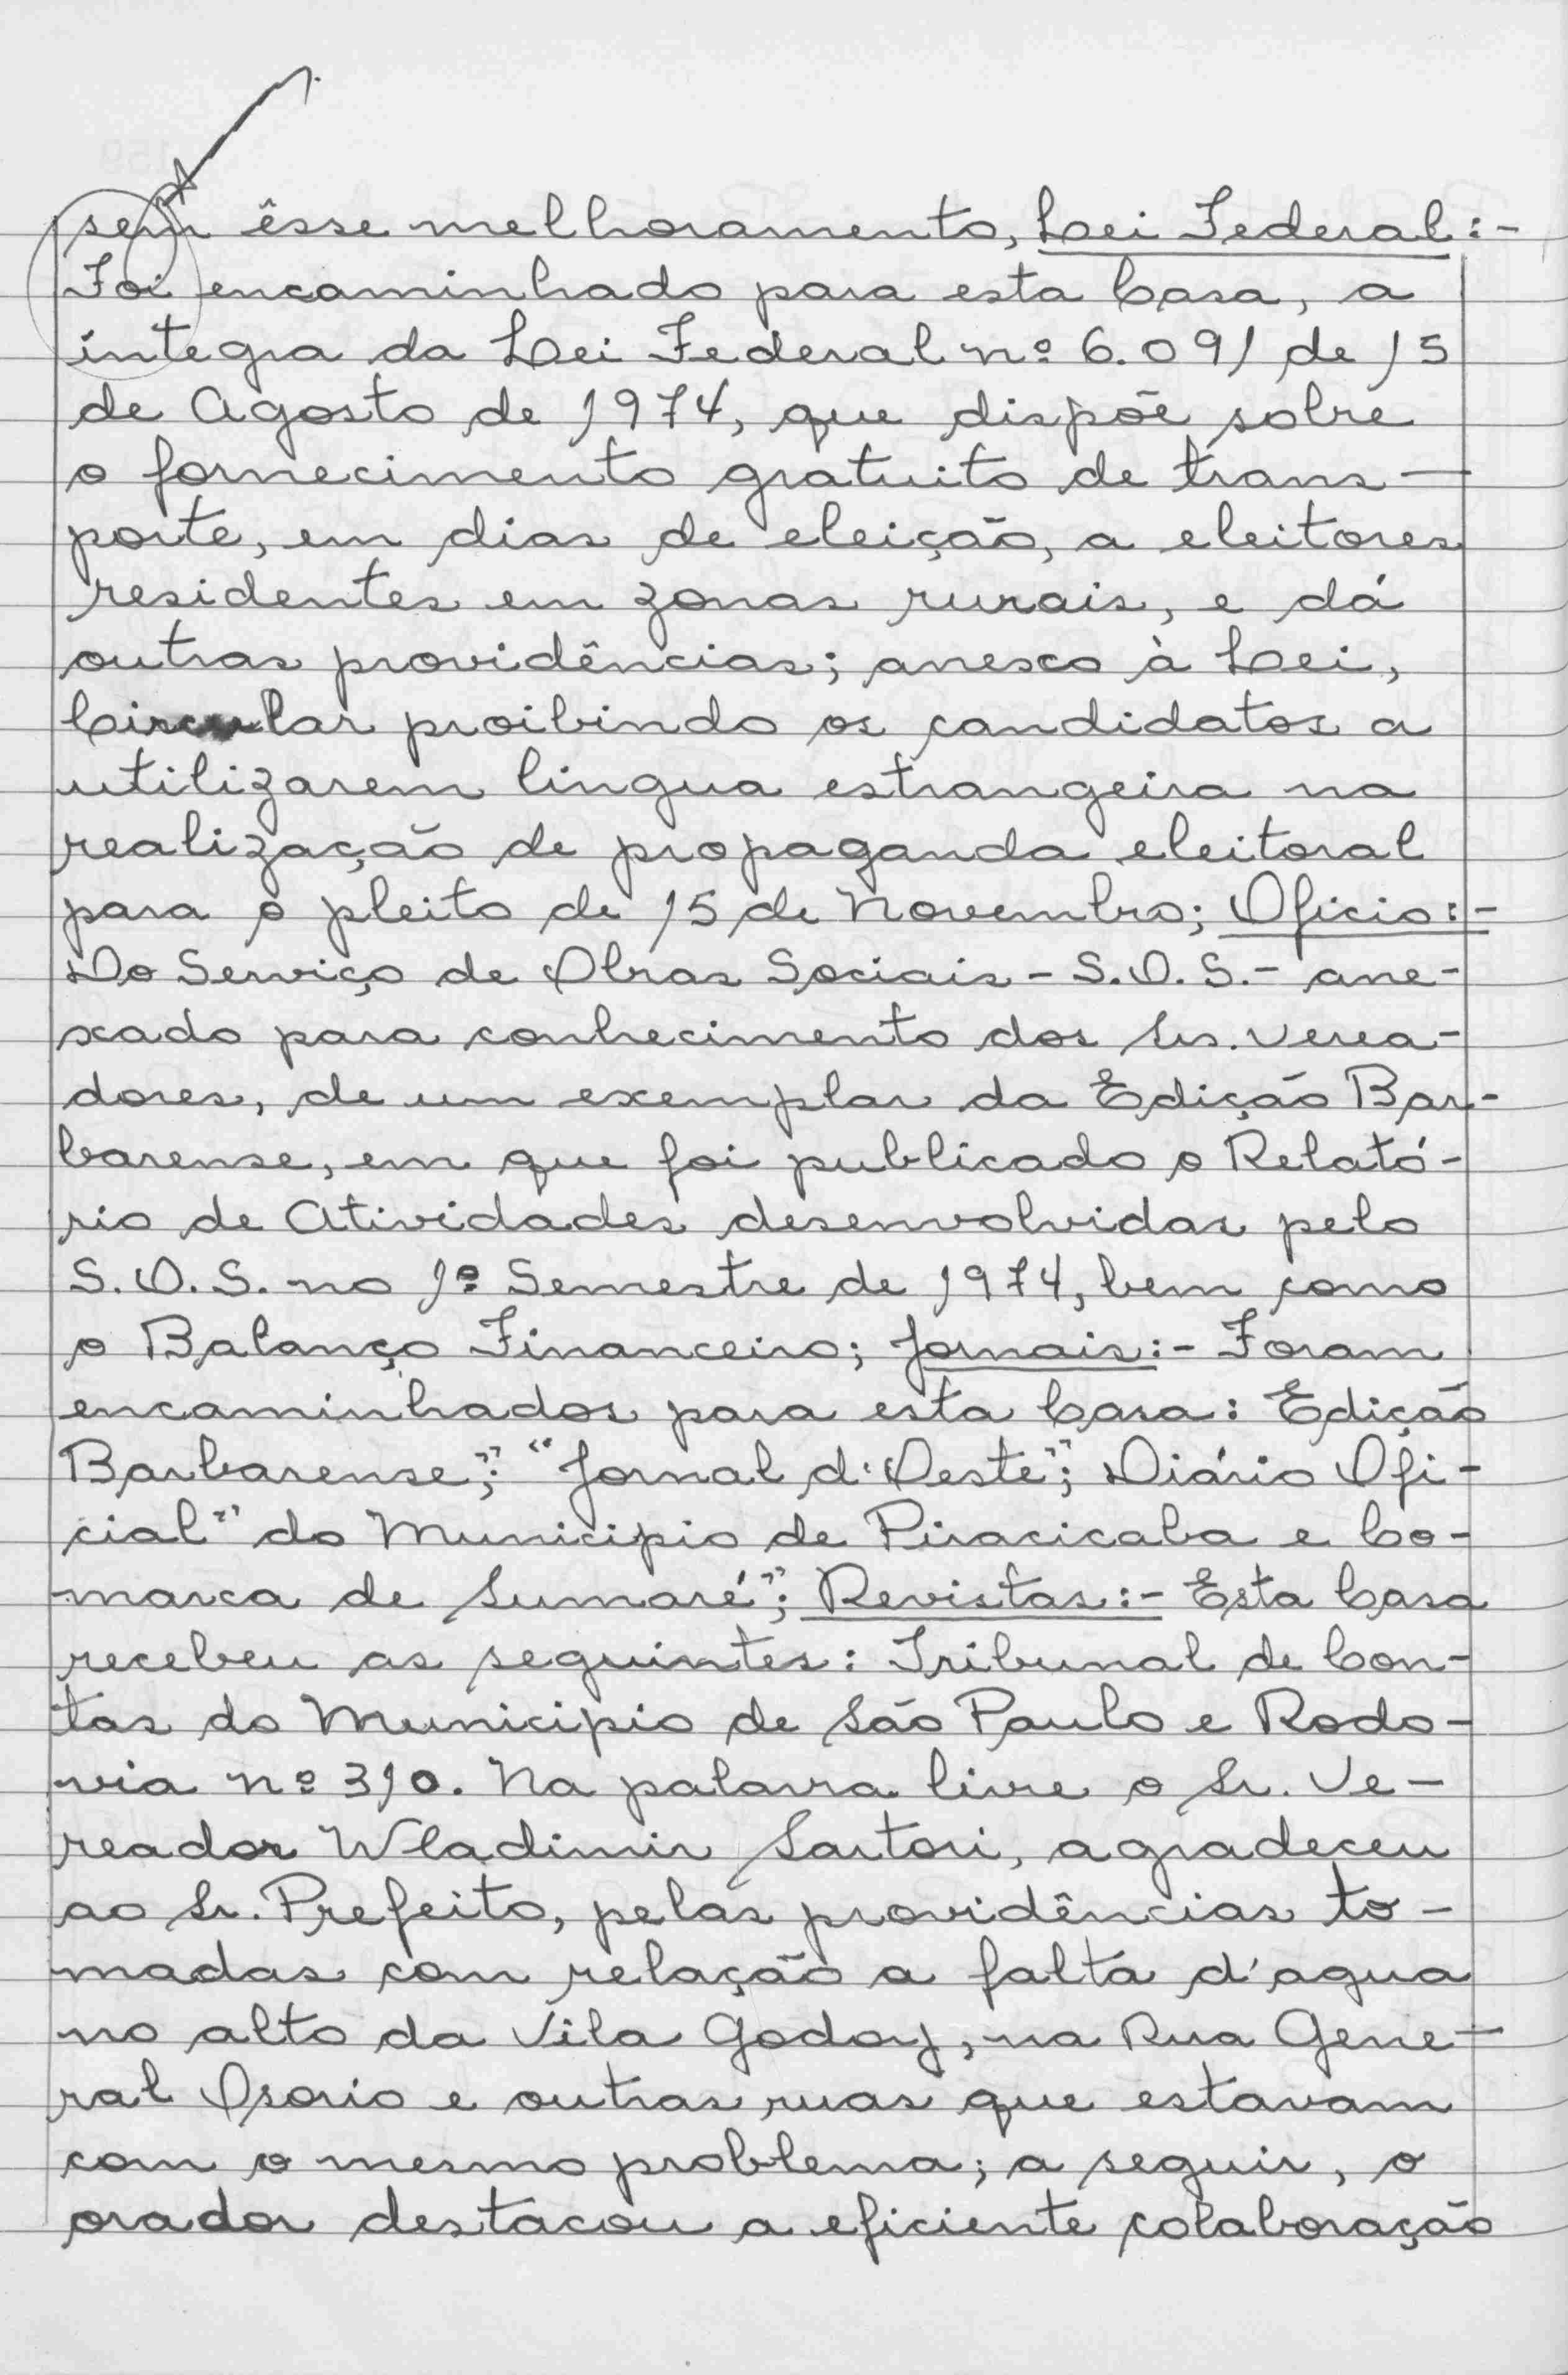 sem êsse melhoramento, Lei Federal:-
Foi encaminhado para esta Casa, a
íntegra da Lei Federal nº 6.091 de 15
de Agosto de 1974, que dispõe sobre
o fornecimento gratuito de trans-
porte, em dias de eleição, a eleitores
residentes em zonas rurais, e dá
outras providências; anexo à Lei,
Circular proibindo os candidatos a
utilizarem lingua estrangeira na
realização de propaganda eleitoral
para o pleito de 15 de Novembro; Oficio:-
Do Serviço de Obras Sociais - S.O.S. - ane-
xado para conhecimento dos Srs. Verea-
dores, de um exemplar da Edição Bar-
barense, em que foi publicado o Relató-
rio de Atividades desenvolvidas pelo
S.O.S. no 1º Semestre de 1974, bem como
o Balanço Financeiro; Jornais:- Foram
encaminhados para esta Casa: Edição
Barbarense"; "Jornal d'Oeste"; Diário Ofi-
cial" do Municipio de Piracicaba e Co-
marca de Sumaré"; Revistas:- Esta Casa
recebeu as seguintes: Tribunal de Con-
tas do Municipio de São Paulo e Rodo-
via nº 310. Na palavra livre o Sr. Ve-
reador Wladimir Sartori, agradeceu
ao Sr. Prefeito, pelas providências to-
madas com relação a falta d'agua
no alto da Vila Godoy, na Rua Gene-
ral Osorio e outras ruas que estavam
com o mesmo problema; a seguir, o
orador destacou a eficiente colaboração